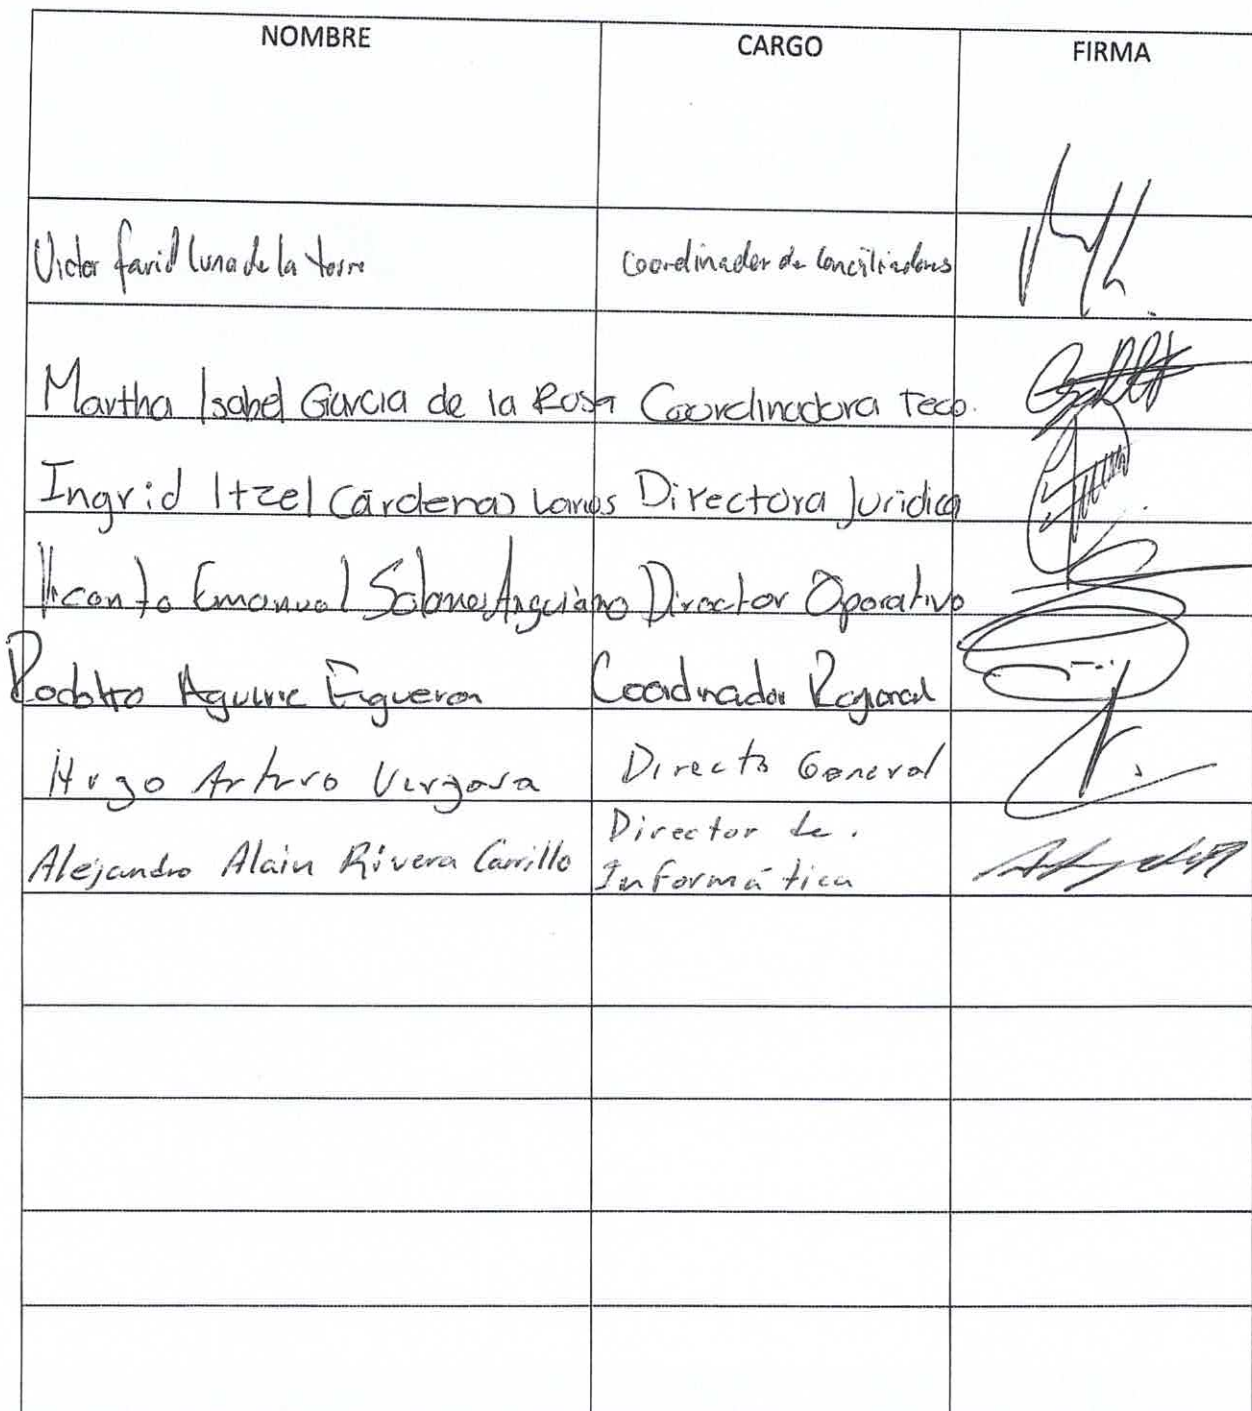 NOMBRE CARGO FIRMA
Victor farid luna de la torre coordinador de conciliadores
Martha Isabel García de la Rosa Coordinadora Teco.
Ingrid Itzel Cárdenas Larios Directora Jurídica
Emanuel Anguiano Director Operativo
Rodolfo Aguirre Figueroa Coordinador Regional
Hugo Arturo Vergara Director General
Director de.
Alejandro Alain Rivera Carrillo Informática